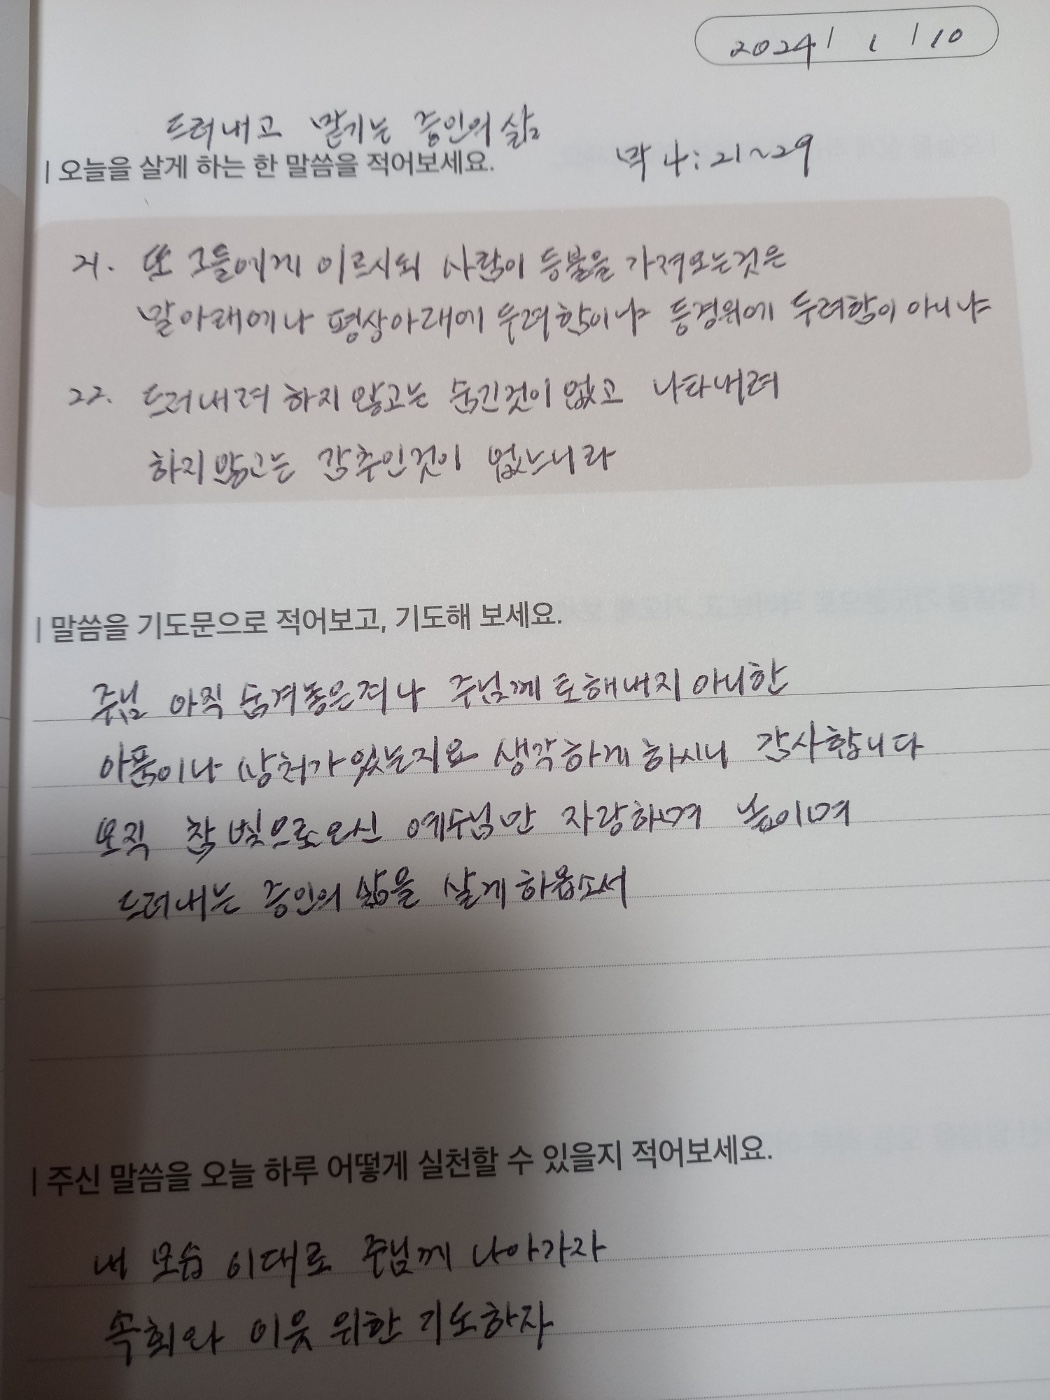 2024 / 1 / 10
드러내고 맡기는 증인의 삶
| 오늘을 살게 하는 한 말씀을 적어보세요.
막 4:21~29
21. 또 그들에게 이르시되 사람이 등불을 가져오는것은
말아래에나 평상아래에 두려함이냐 등경위에 두려함이 아니냐
22. 드러내려 하지 않고는 숨긴것이 없고 나타내려
하지않고는 감추인것이 없느니라
| 말씀을 기도문으로 적어보고, 기도해 보세요.
주님 아직 숨겨놓은죄나 주님께 토해내지 아니한
아픔이나 상처가 있는지요 생각하게 하시니 감사합니다
오직 참 빛으로오신 예수님만 자랑하며 높이며
드러내는 증인의 삶을 살게하옵소서
| 주신 말씀을 오늘 하루 어떻게 실천할 수 있을지 적어보세요.
내 모습 이대로 주님께 나아가자
속회와 이웃 위한 기도하자